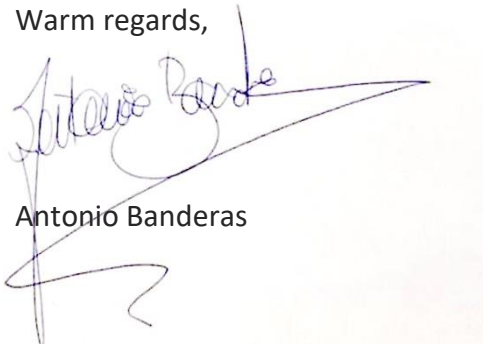 Warm regards,
Antonio Banderas
Antonio Banderas